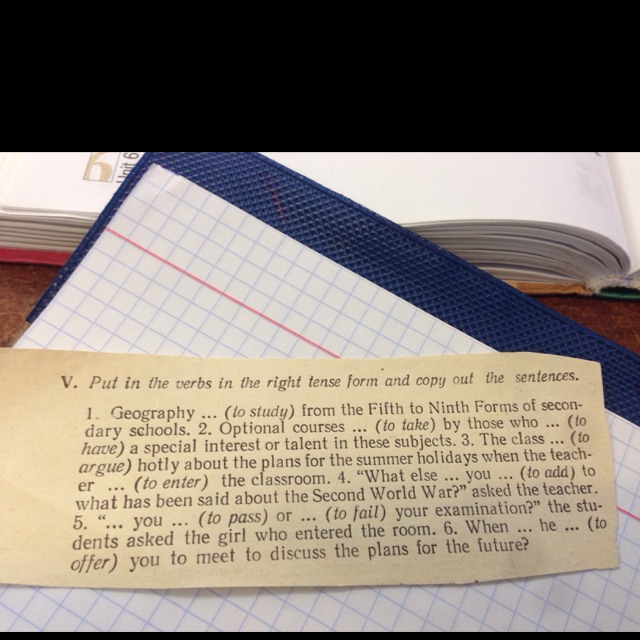 Unit 6
V. Put in the verbs in the right tense form and copy out the sentences.
1. Geography ... (to study) from the Fifth to Ninth Forms of secon-
dary schools. 2. Optional courses ... (to take) by those who ... (to
have) a special interest or talent in these subjects. 3. The class ... (to
argue) hotly about the plans for the summer holidays when the teach-
er ... (to enter) the classroom. 4. “What else ... you ... (to add) to
what has been said about the Second World War?” asked the teacher.
5. “... you ... (to pass) or ... (to fail) your examination?” the stu-
dents asked the girl who entered the room. 6. When ... he ... (to
offer) you to meet to discuss the plans for the future?